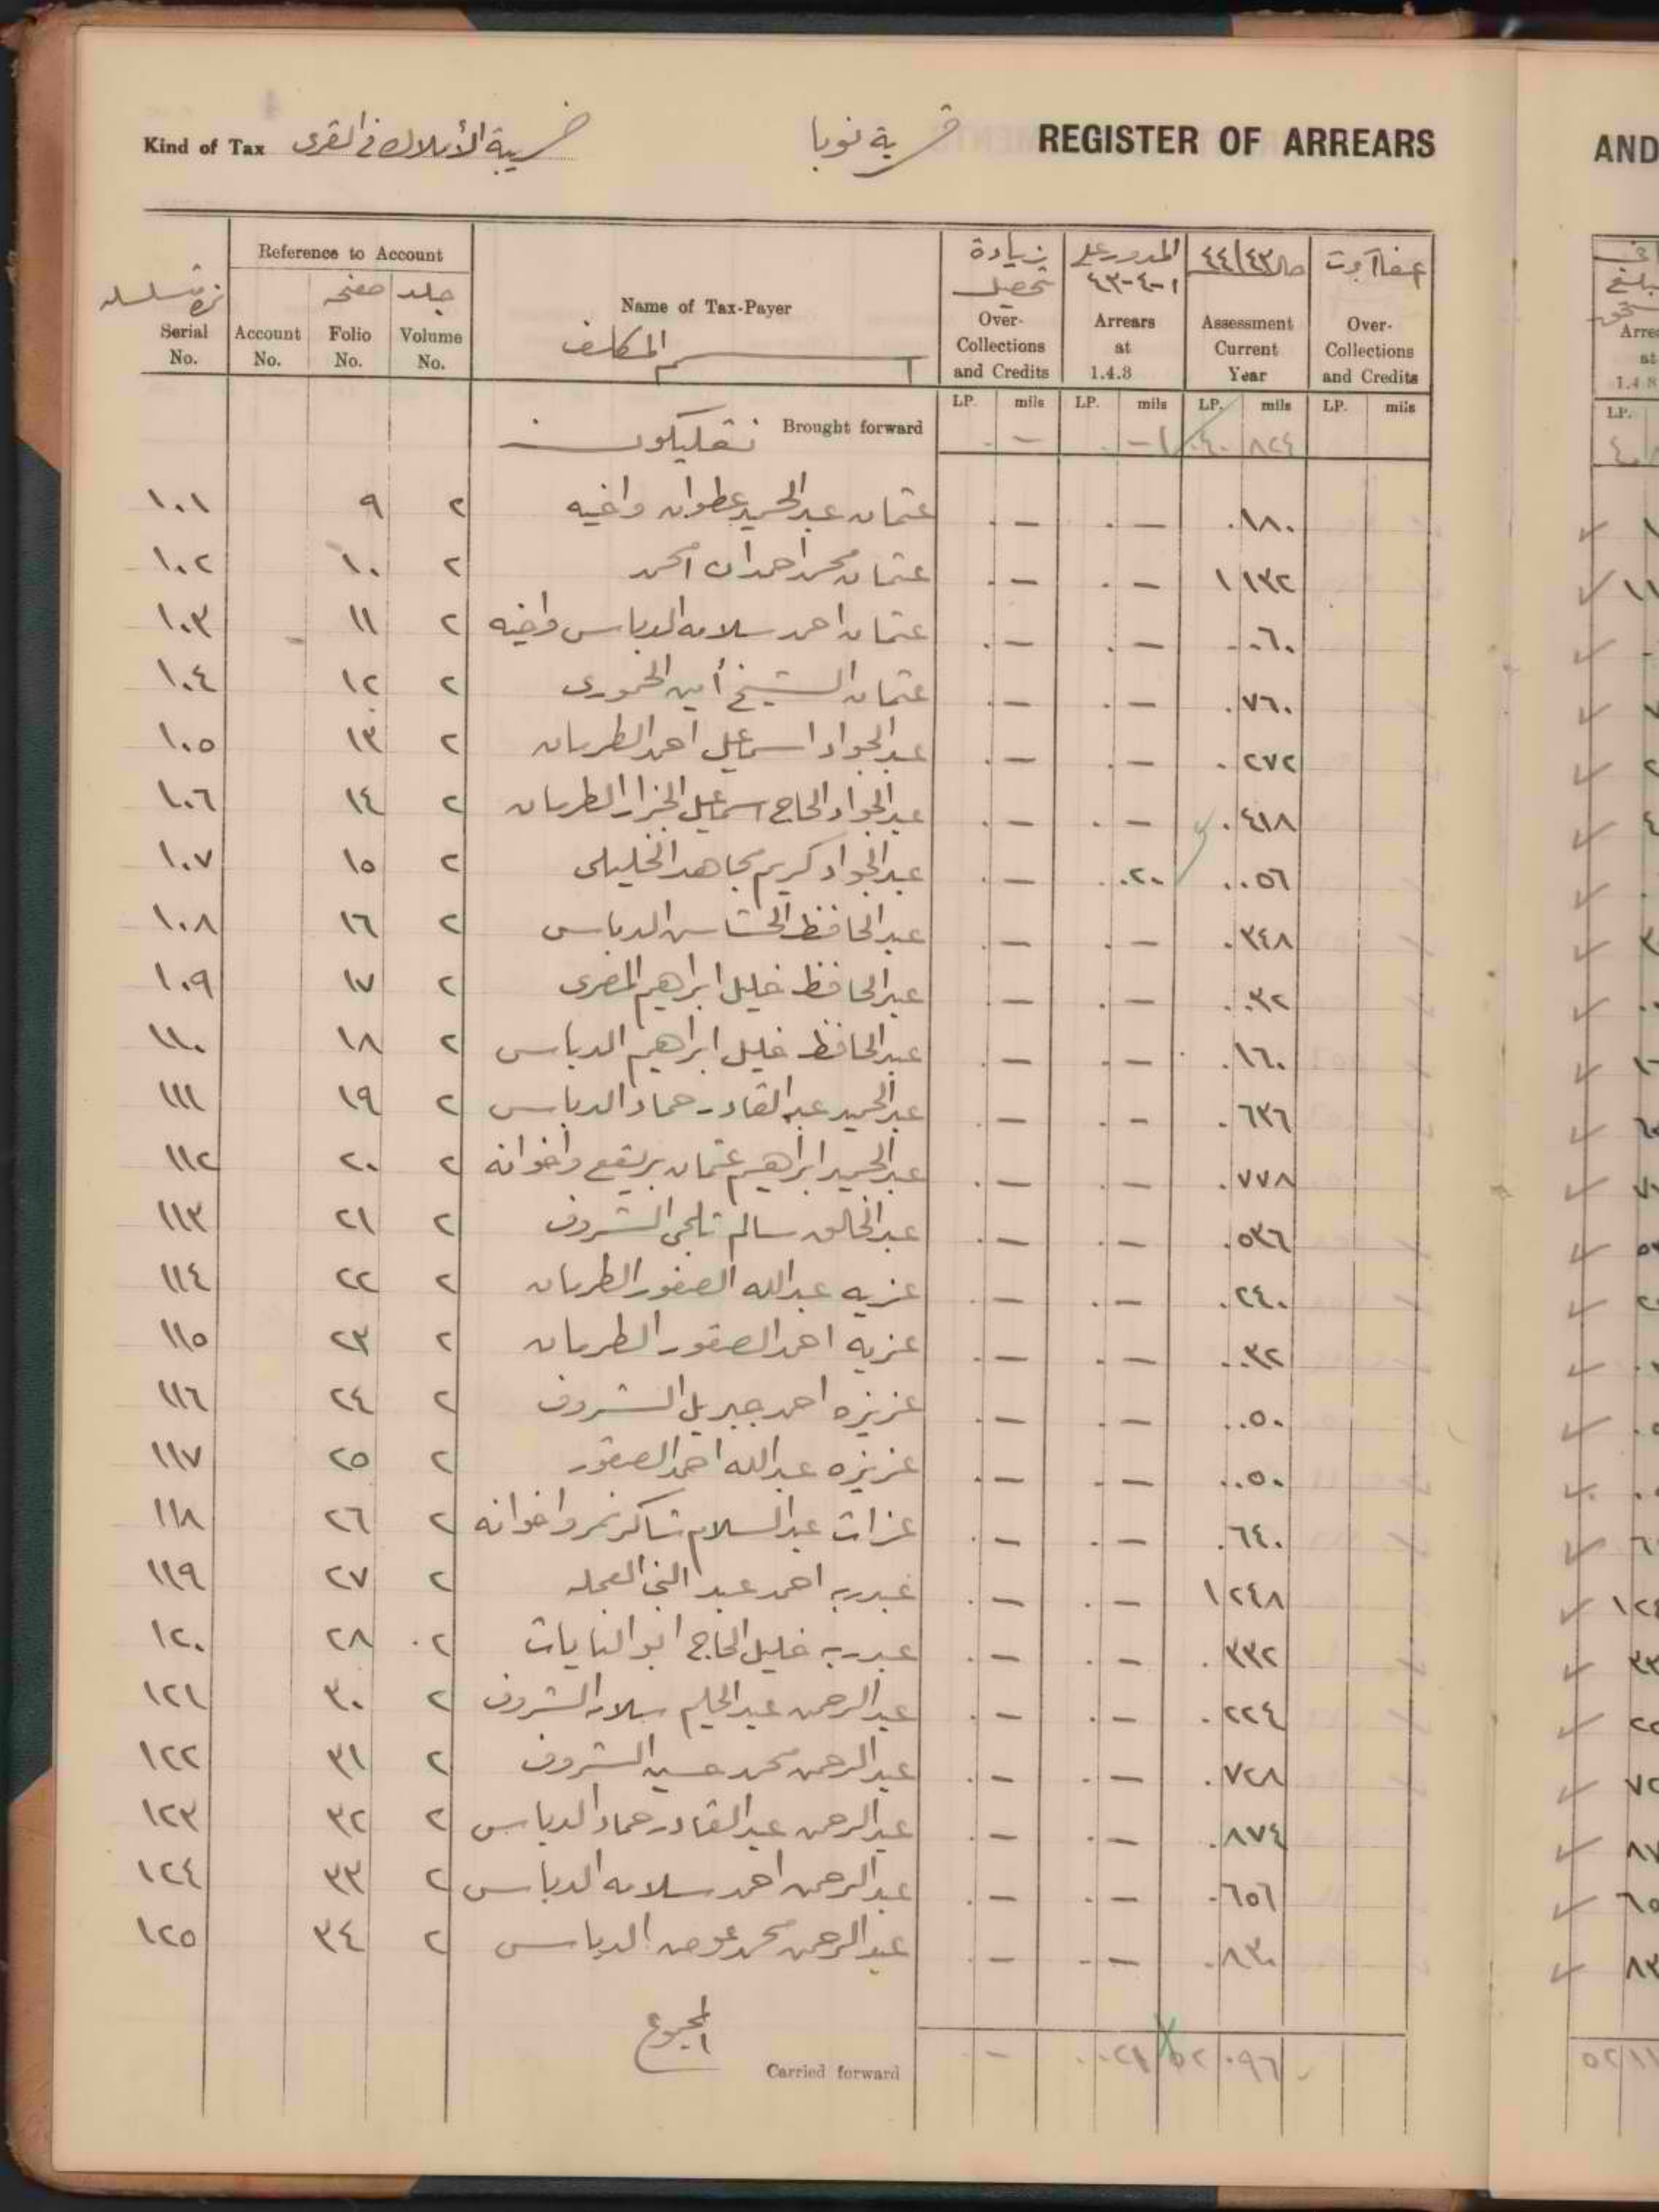 Kind of Tax ضريبة الأملاك في القرى قرية نوبا REGISTER OF ARREARS
نمرة متسلسله Serial No.
Reference to Account
Account No. صفحه Folio No. جلد Volume No.
Name of Tax-Payer
اسم المكلف
زيادة تحصيل Over-Collections and Credits
المدور على ١-٤-٤٣ Arrears at 1.4.3
٤٤/٤٣ Assessment Current Year
Over-Collections and Credits
LP. mils LP. mils LP. mils LP. mils
Brought forward — — ١ ٤٠ ٨٢٤
١٠١ ٩ ٢ عثمان عبدالحميد عطوان واخيه . — . — .١٨٠
١٠٢ ١٠ ٢ عثمان محمد احمدان امحمد . — . — ١ ١٣٢
١٠٣ ١١ ٢ عثمان احمد سلامه الدباس واخيه . — . — .٠٦٠
١٠٤ ١٢ ٢ عثمان الشيخ أمين الخموري . — . — .٧٦٠
١٠٥ ١٣ ٢ عبدالجواد اسماعيل احمد الطرمان . — . — .٢٧٢
١٠٦ ١٤ ٢ عبدالجواد الحاج اسماعيل الجزار الطرمان . — . — .٤١٨
١٠٧ ١٥ ٢ عبدالجواد كريم مجاهد الخليلى . — .٠٢٠ .٠٥٦
١٠٨ ١٦ ٢ عبدالحافظ الخشاسن الدباس . — . — .٣٤٨
١٠٩ ١٧ ٢ عبدالحافظ خليل ابراهيم المصرى — . — .٠٣٢
١١٠ ١٨ ٢ عبدالحافظ خليل ابراهيم الدباس . — . — .١٦٠
١١١ ١٩ ٢ عبدالحميد عبدالقادر حماد الدباس . — . — .٦٣٦
١١٢ ٢٠ ٢ عبدالحميد ابراهيم عثمان بريقع واخوانه . — . — .٧٧٨
١١٣ ٢١ ٢ عبدالخالق سالم تلجى الشروف . — . — .٥٣٦
١١٤ ٢٢ ٢ عزيه عبدالله الصقور الطرمان . — . — .٢٤٠
١١٥ ٢٣ ٢ عزيه احمد الصقور الطرمان . — . — .٠٣٢
١١٦ ٢٤ ٢ عزيزه احمد جبريل الشروف . — . — .٠٥٠
١١٧ ٢٥ ٢ عزيزه عبدالله احمد الصقور . — . — .٠٥٠
١١٨ ٢٦ ٢ عزات عبدالسلام شاكر نمر واخوانه . — . — .٦٤٠
١١٩ ٢٧ ٢ عبدربه احمد عبد النبي العجله . — . — ١ ٢٤٨
١٢٠ ٢٨ ٢ عبدربه خليل الحاج ابو النايات . — . — .٣٣٢
١٢١ ٣٠ ٢ عبدالرحمن عبدالحليم سلامه الشروف . — . — .٢٢٤
١٢٢ ٣١ ٢ عبدالرحمن محمد حسين الشروف . — . — .٧٢٨
١٢٣ ٣٢ ٢ عبدالرحمن عبدالقادر حماد الدباس . — . — .٨٧٤
١٢٤ ٣٣ ٢ عبدالرحمن احمد سلامه الدباس . — . — .٦٥٦
١٢٥ ٣٤ ٢ عبدالرحمن محمد عوض الدباس . — . — .٨٣٠
المجموع
Carried forward — .٠٢١ ٥٢ ٠٩٦
AND